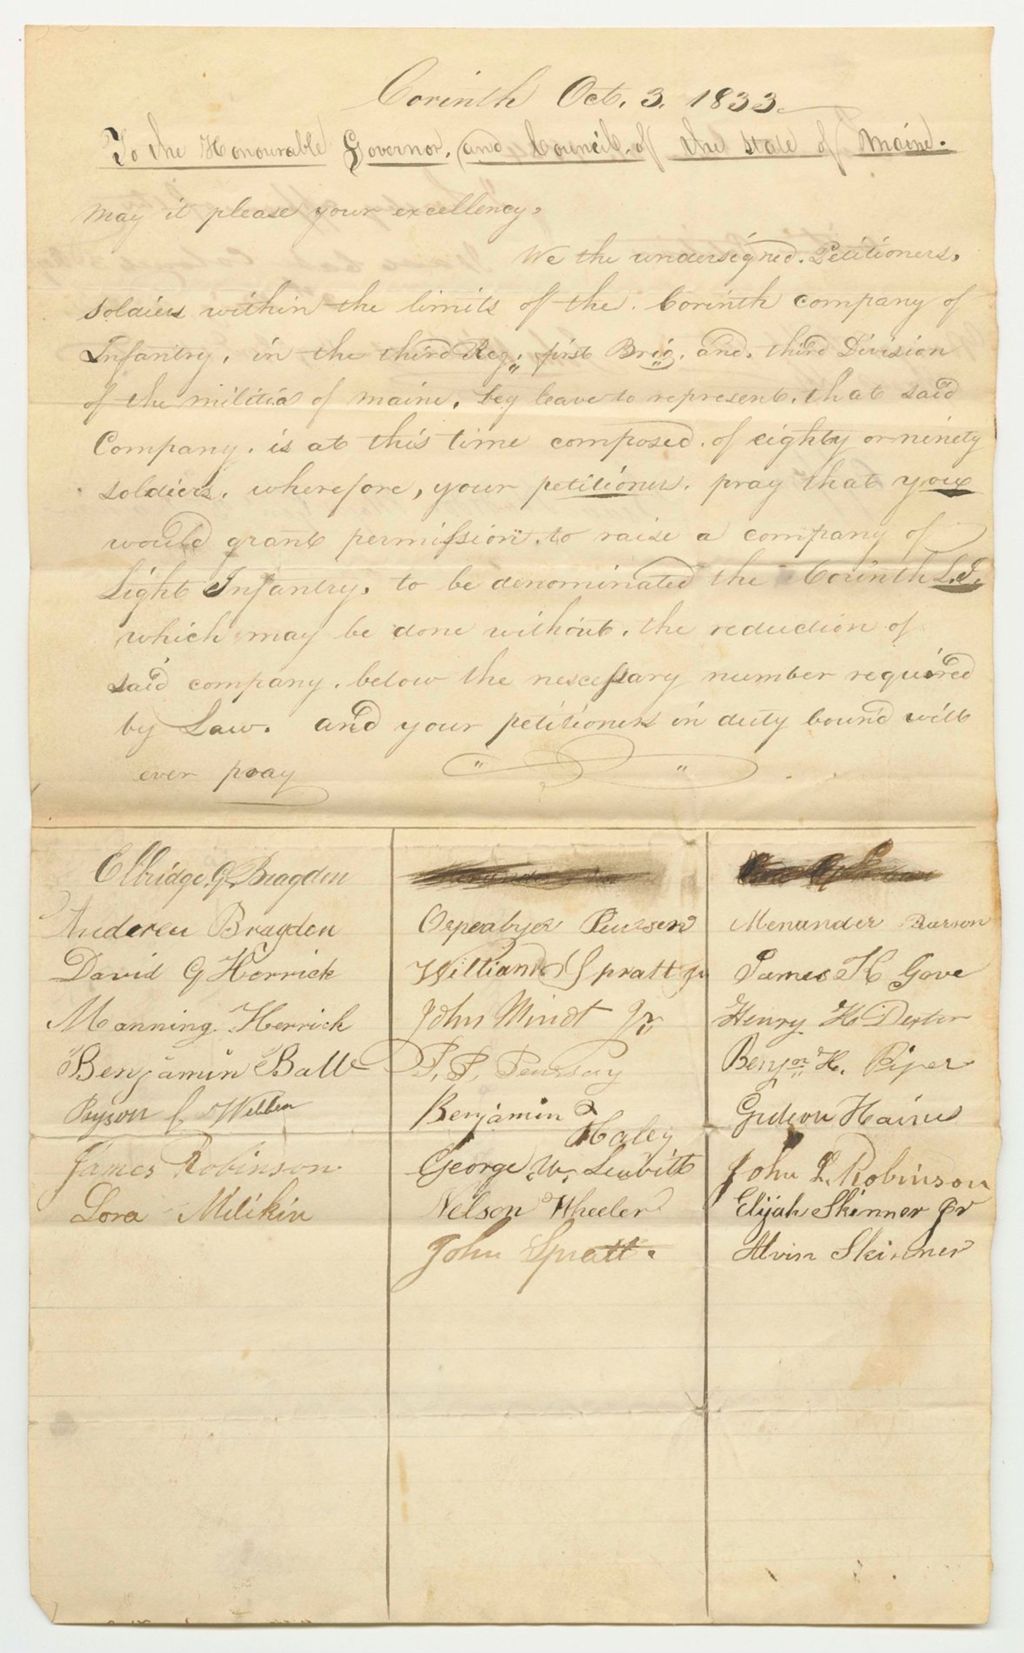 Corinth Oct. 3. 1833.
To the Honourable Governor, and Council of the State of Maine.
May it please your excellency,
We the undersigned. Petitioners,
soldiers within the limits of the. Corinth company of
Infantry, in the third Reg; first Brig, and, third Division
of the militia of maine, beg leave to represent, that said
Company, is at this time composed, of eighty or ninety
soldiers, wherefore, your petitioners, pray that you
would grant permission, to raise a company of
Light Infantry, to be denominated the Corinth L.I.
which may be done without, the reduction of
said company, below the nescessary number required
by Law. and your petitioners in duty bound will
ever pray
Elbridge. G. Bragden
Bragden
David G Herrick
Manning Herrick
Benjamin Ball
James Robinson
Lora Milikin
William Spratt Jr
John Minot Jr
Benjamin
Haley
George W. Leavitt
Nelson Wheeler
John Spratt.
Menander
James K Gove
Henry H Dexter
Benj.on H. Piper
Gideon Haines
John L. Robinson
Elijah Skinner Jr
Alvin Skinner